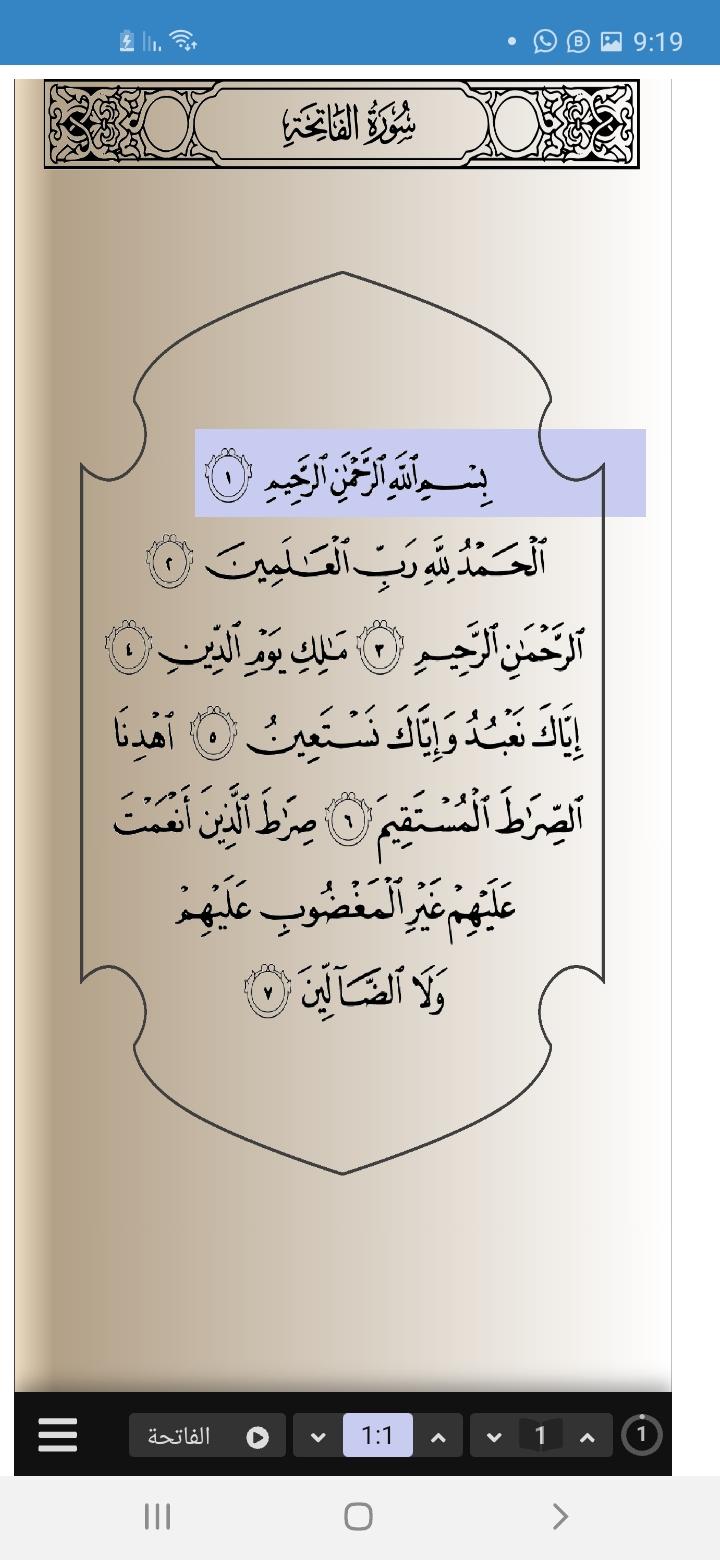 9:19
سُورَةُ الفَاتِحَةِ
بِسۡمِ ٱللَّهِ ٱلرَّحۡمَٰنِ ٱلرَّحِيمِ ١
ٱلۡحَمۡدُ لِلَّهِ رَبِّ ٱلۡعَٰلَمِينَ ٢
ٱلرَّحۡمَٰنِ ٱلرَّحِيمِ ٣ مَٰلِكِ يَوۡمِ ٱلدِّينِ ٤
إِيَّاكَ نَعۡبُدُ وَإِيَّاكَ نَسۡتَعِينُ ٥ ٱهۡدِنَا
ٱلصِّرَٰطَ ٱلۡمُسۡتَقِيمَ ٦ صِرَٰطَ ٱلَّذِينَ أَنۡعَمۡتَ
عَلَيۡهِمۡ غَيۡرِ ٱلۡمَغۡضُوبِ عَلَيۡهِمۡ
وَلَا ٱلضَّآلِّينَ ٧
الفاتحة 1:1 1 1